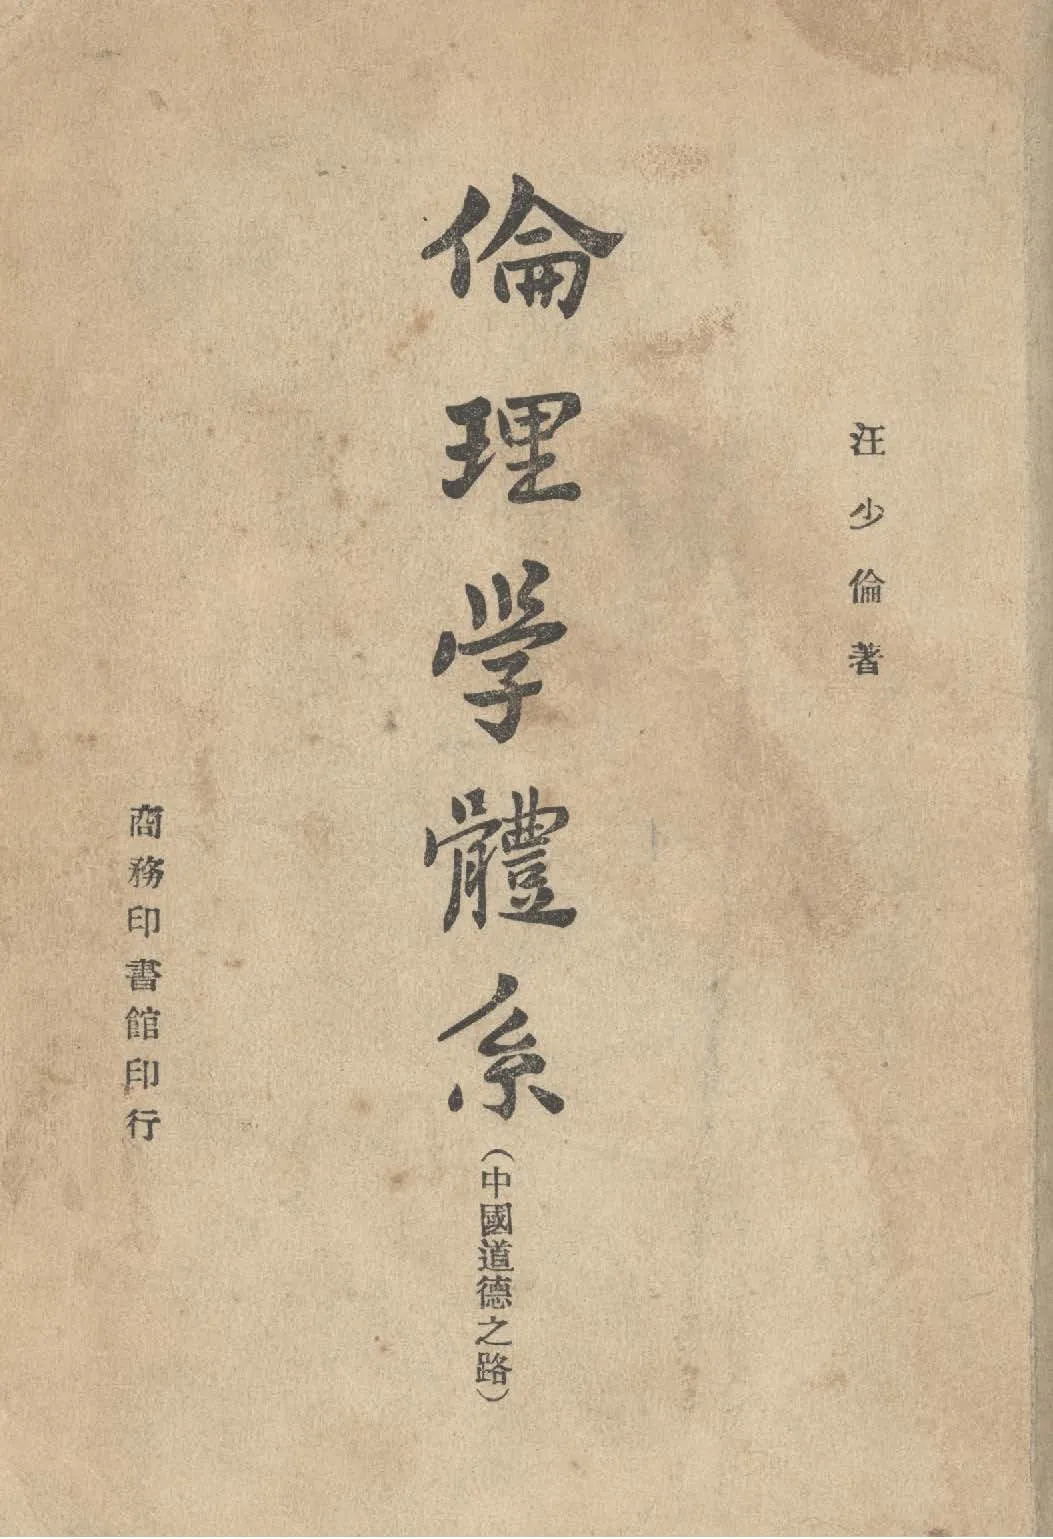 汪少倫著
倫理学體系（中國道德之路）
商務印書館印行